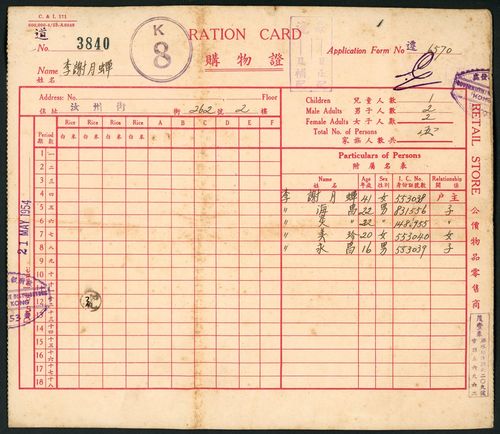 C. & I. 111
RATION CARD
購物證
K
8
No. 3840
Application Form No 6570
Name 李謝月蟬
姓名
Address: No. Floor
住址 汝州街 街 262 號 2 樓
Children 兒童人數 1
Male Adults 男子人數 2
Female Adults 女子人數 2
Total No. of Persons
家族人數共
Period 期數
Rice Rice Rice Rice A B C D E F
白米 白米 白米 白米
1 一
2 二
3 三
4 四
5 五
6 六
7 七
8 八
9 九
10 十
11 十一
12 十二
13 十三
14 十四
15 十五
16 十六
17 十七
18 十八
21 MAY 1954
Particulars of Persons
附屬名表
Name 姓名 Age 年歲 Sex 性別 I. C. No. 身份証號數 Relationship 關係
李謝月蟬 41 女 553038 户主
〃 海昌 22 男 831556 子
〃 22 〃 〃
〃 美玲 20 女 553040 女
〃 永昌 16 男 553039 子
RETAIL STORE 公價物品零售商